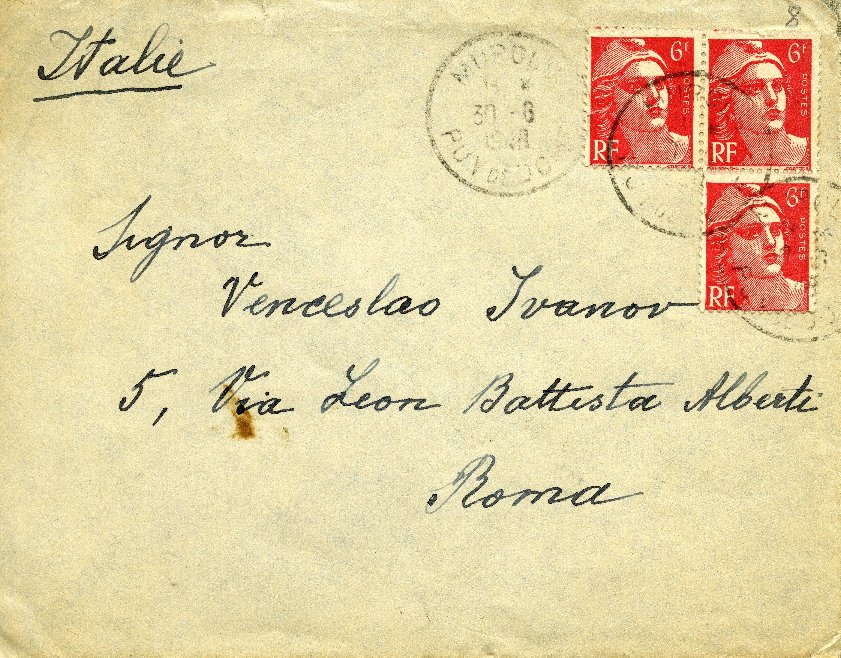 Italie
8
MUROL
30 -6
PUY DE DOME
6F
POSTES
RF
6F
POSTES
RF
6F
POSTES
RF
Signor
Venceslao Ivanov
5, Via Leon Battista Alberti
Roma